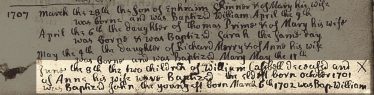 1707 March the 29th the Son of Ephraim Skinner & Mary his wife
was borne and was Baptized William April the 9th
April the 6th the daughter of Thomas Prince & of Mary his wife
was borne & was Baptized Sarah the same day
May the 4th the daughter of Richard Morry & of Anne his wife
was borne and was Baptized Mary May the 11th
June the 9th the two children of William Catchell Deceased and
of Anne his wife were Baptized the eldest born october 1701
was Baptized John, the youngest born March 6th 1702 was Bap William